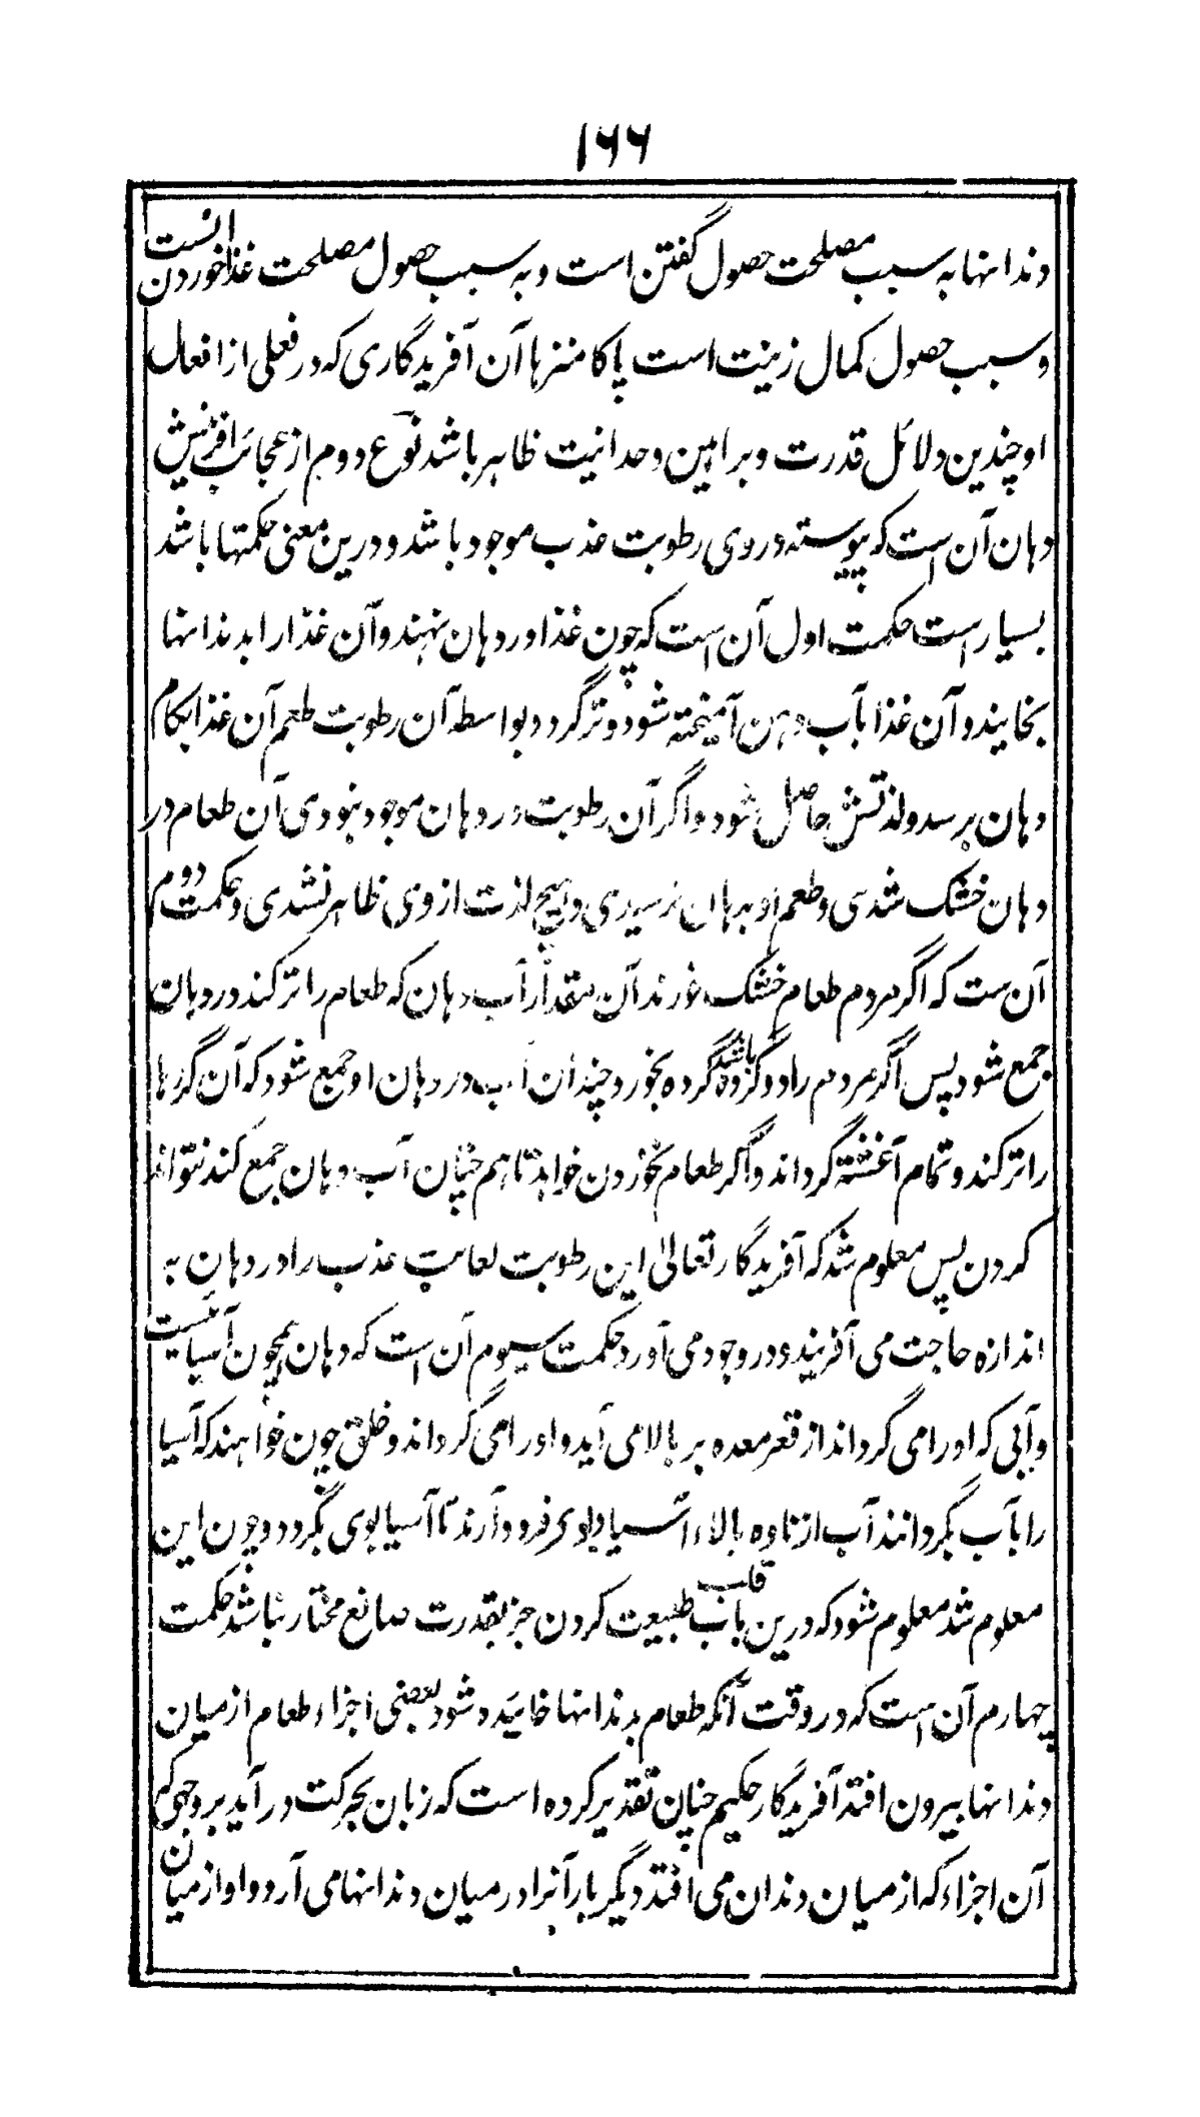 ۱۶۶
دندانها به سبب مصلحت حصول گفتن است و به سبب حصول مصلحت غذا خوردن است
و سبب حصول کمال زینت است پاکا منزها آن آفریدگاری که در فعلی از افعال
او چندین دلائل قدرت و براهین وحدانیت ظاهر باشد نوع دوم از عجائب آفرینش
دهان آن است که پیوسته در وی رطوبت عذب موجود باشد و درین معنی حکمتها باشد
بسیار است حکمت اول آن است که چون غذا در دهان نهند و آن غذا را بدندانها
بخایند و آن غذا بآب دهن آمیخته شود و تر گردد بواسطه آن رطوبت طعم آن غذا بکام
دهان برسد و لذتش حاصل شود و اگر آن رطوبت در دهان موجود نبودی آن طعام در
دهان خشک شدی و طعم او بدهان نرسیدی و هیچ لذت از وی ظاهر نشدی و حکمت دوم
آن ست که اگر مردم طعام خشک خورند آن مقدار آب دهان که طعام را تر کند در دهان
جمع شود پس اگر مردم را دو گروه باشد گرده بخورد چندان آب در دهان او جمع شود که آن گردها
را تر کند و تمام آغشته گرداند و اگر طعام نخوردن خواهد تا هم چنان آب دهان جمع کند نتواند
کردن پس معلوم شد که آفریدگار تعالیٰ این رطوبت لعاب عذب را در دهان به
اندازه حاجت می آفریند و در وجود می آورد حکمت سیوم آن است که دهان همچون آسیائیست
و آبی که او را می گرداند از قعر معده بر بالا می آید و او را می گرداند و خلق چون خواهند که آسیا
را بآب بگردانند آب از ناوه بالاء آسیا بوی فرود آرند تا آسیا بوی بگردد و چون این
معلوم شد معلوم شود که درین باب قلب طبیعت کردن جز بقدرت صانع مختار نباشد حکمت
چهارم آن است که در وقت آنکه طعام بدندانها خائیده شود بعضی اجزاء طعام از میان
دندانها بیرون افتد آفریدگار حکیم چنان تقدیر کرده است که زبان بحرکت در آید بر وجهی که
آن اجزاء که از میان دندان می افتد دیگر بار آنرا در میان دندانها می آرد و او از میان آن